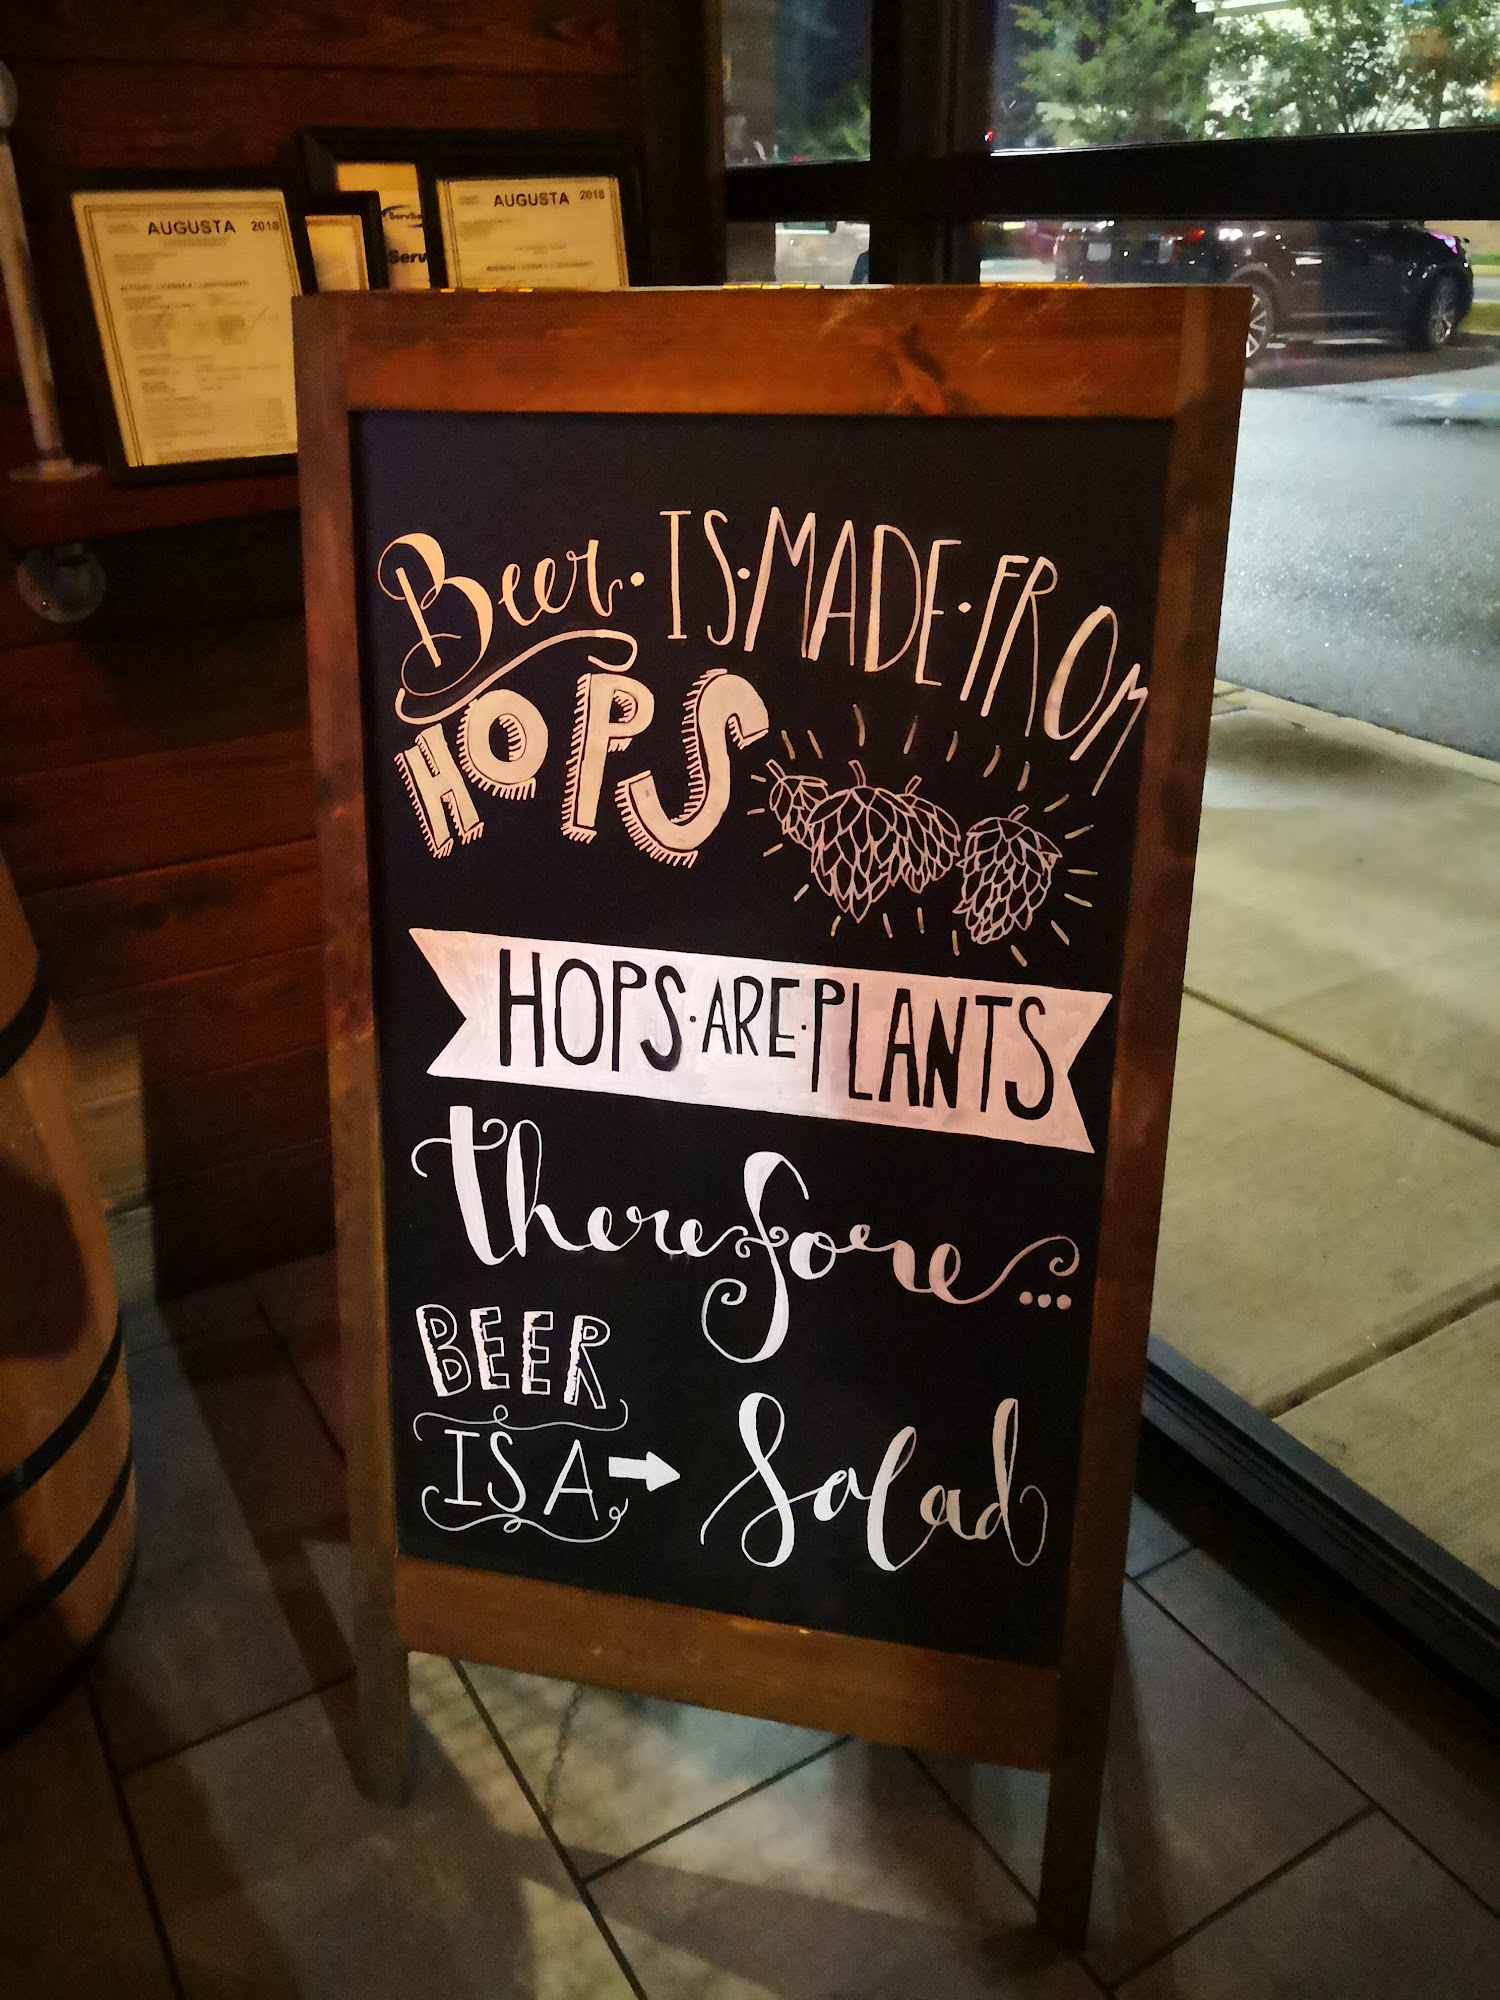 AUGUSTA 2018
AUGUSTA 2018
Beer · IS · MADE · FROM
HOPS
HOPS · ARE · PLANTS
therefore...
BEER
IS A → Salad